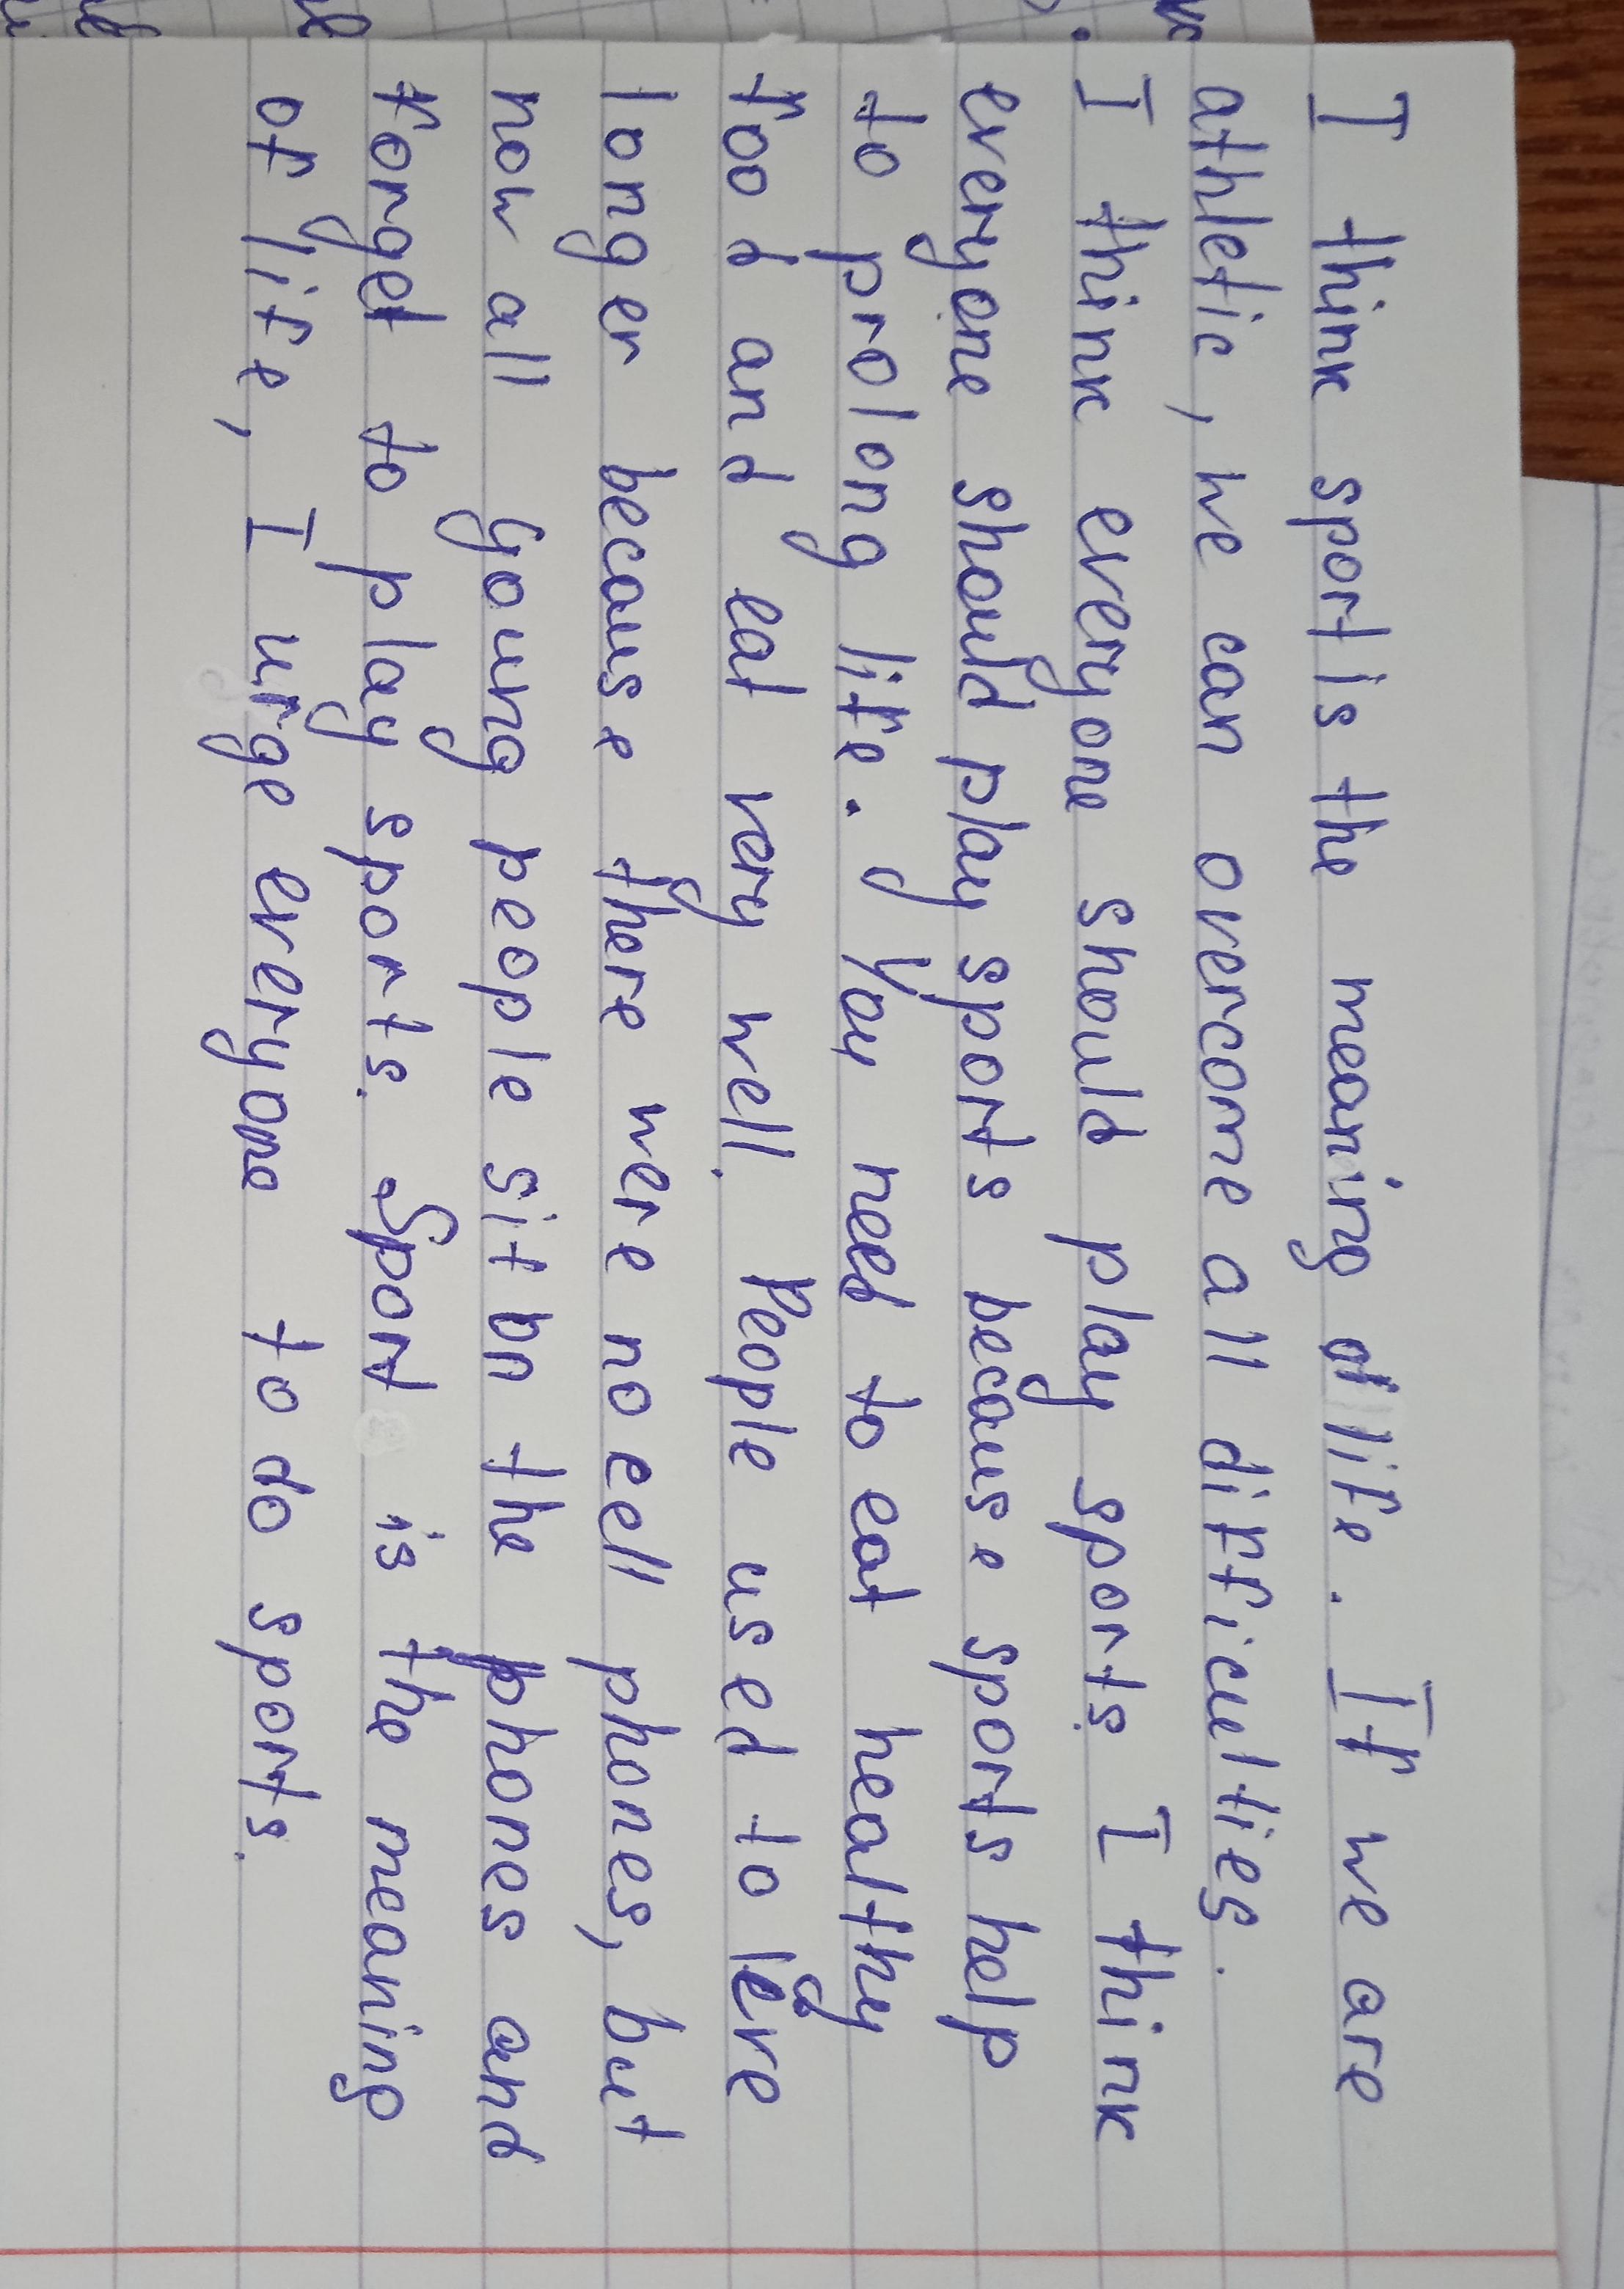 I think sport is the meaning of life. If we are
athletic, we can overcome all difficulties.
I think everyone should play sports I think
everyone should play sports because sports help
to prolong life. You need to eat healthy
food and eat very well. People used to leve
longer because there were no cell phones, but
now all young people sit on the phones and
forget to play sports. Sport is the meaning
of life, I urge everyone to do sports.